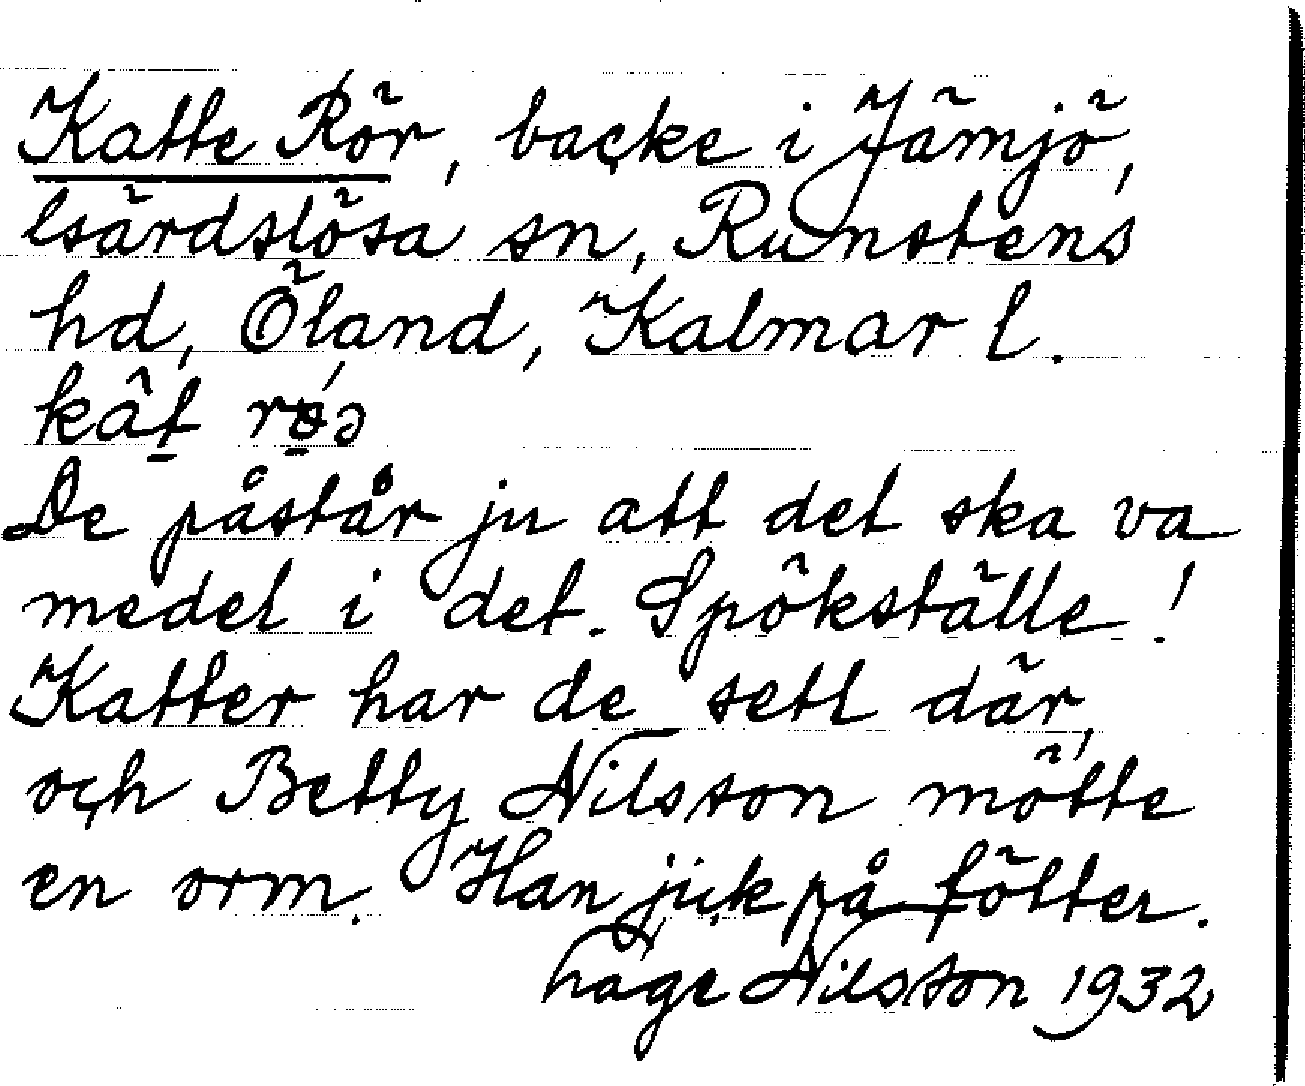 Katte Rör, backe i Jämjö,
Gärdslösa sn, Runstens
hd, Öland, Kalmar l.
kât
De påstår ju att det ska va
medel i det. Spökställe!
Katter har de sett där,
och Betty Nilsson mötte
en orm. Han jick på fötter.
Håge Nilsson 1932